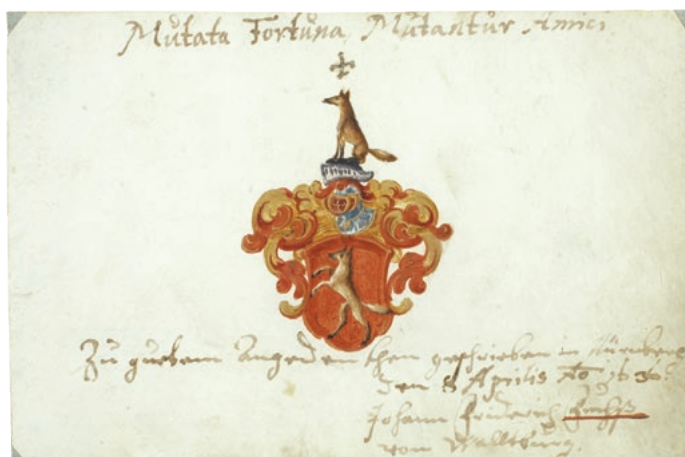 Mutata Fortuna, Mutantur Amici
Zu guetem Angedenckhen geschrieben in Nürnberg
den 8 Aprilis Ao
Johann Friderich Fuchß
vom Wallburg.